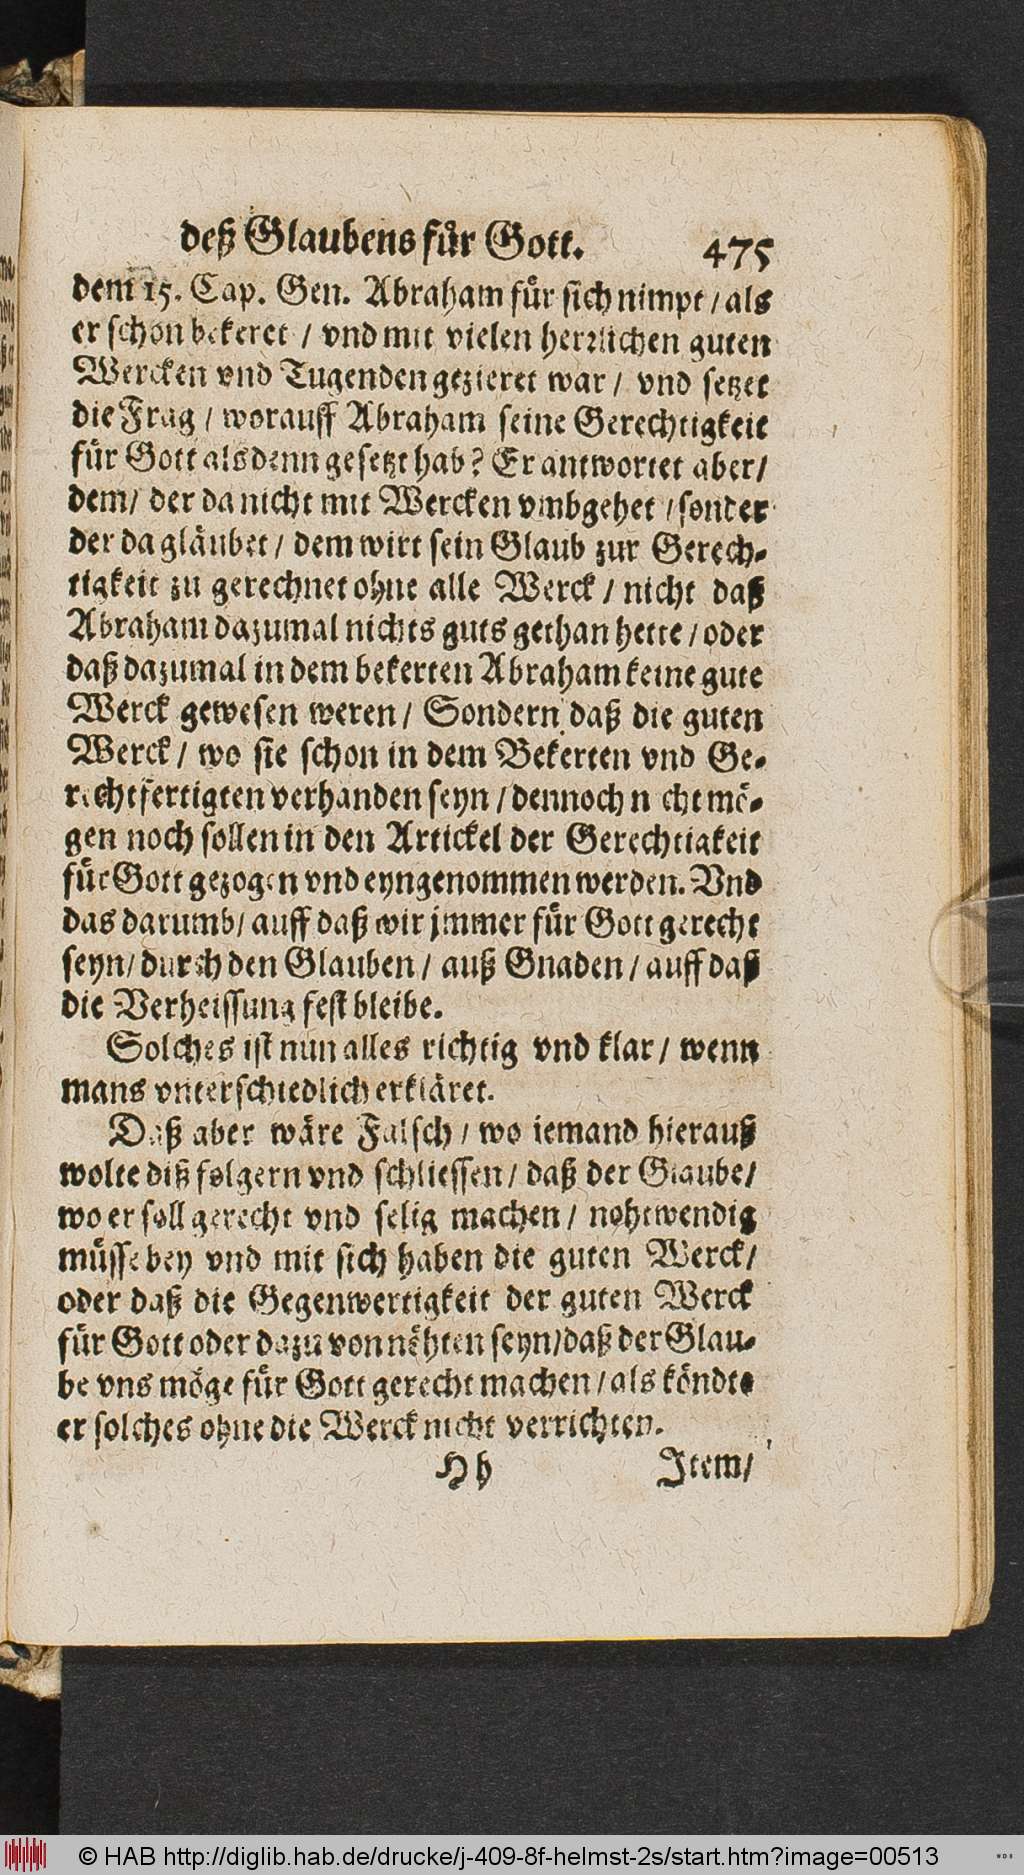 deß Glaubens für Gott. 475
dem 15. Cap. Gen. Abraham für sich nimpt / als
er schon bekeret / vnd mit vielen herrlichen guten
Wercken vnd Tugenden gezieret war / vnd setzet
die Frag / worauff Abraham seine Gerechtigkeit
für Gott alsdenn gesetzt hab? Er antwortet aber /
dem / der da nicht mit Wercken vmbgehet / sonder
der da gläubet / dem wirt sein Glaub zur Gerech-
tigkeit zu gerechnet ohne alle Werck / nicht daß
Abraham dazumal nichts guts gethan hette / oder
daß dazumal in dem bekerten Abraham keine gute
Werck gewesen weren / Sondern daß die guten
Werck / wo sie schon in dem Bekerten vnd Ge-
rechtfertigten verhanden seyn / dennoch nicht mö-
gen noch sollen in den Artickel der Gerechtigkeit
für Gott gezogen vnd eyngenommen werden. Vnd
das darumb / auff daß wir jmmer für Gott gerecht
seyn / durch den Glauben / auß Gnaden / auff daß
die Verheissung fest bleibe.
Solches ist nun alles richtig vnd klar / wenn
mans vnterschiedlich erkläret.
Daß aber wäre Falsch / wo iemand hierauß
wolte diß folgern vnd schliessen / daß der Glaube /
wo er soll gerecht vnd selig machen / nohtwendig
müsse bey vnd mit sich haben die guten Werck /
oder daß die Gegenwertigkeit der guten Werck
für Gott oder dazu von nöhten seyn / daß der Glau-
be vns möge für Gott gerecht machen / als köndte
er solches ohne die Werck nicht verrichten.
Hh Item /
© HAB http://diglib.hab.de/drucke/j-409-8f-helmst-2s/start.htm?image=00513